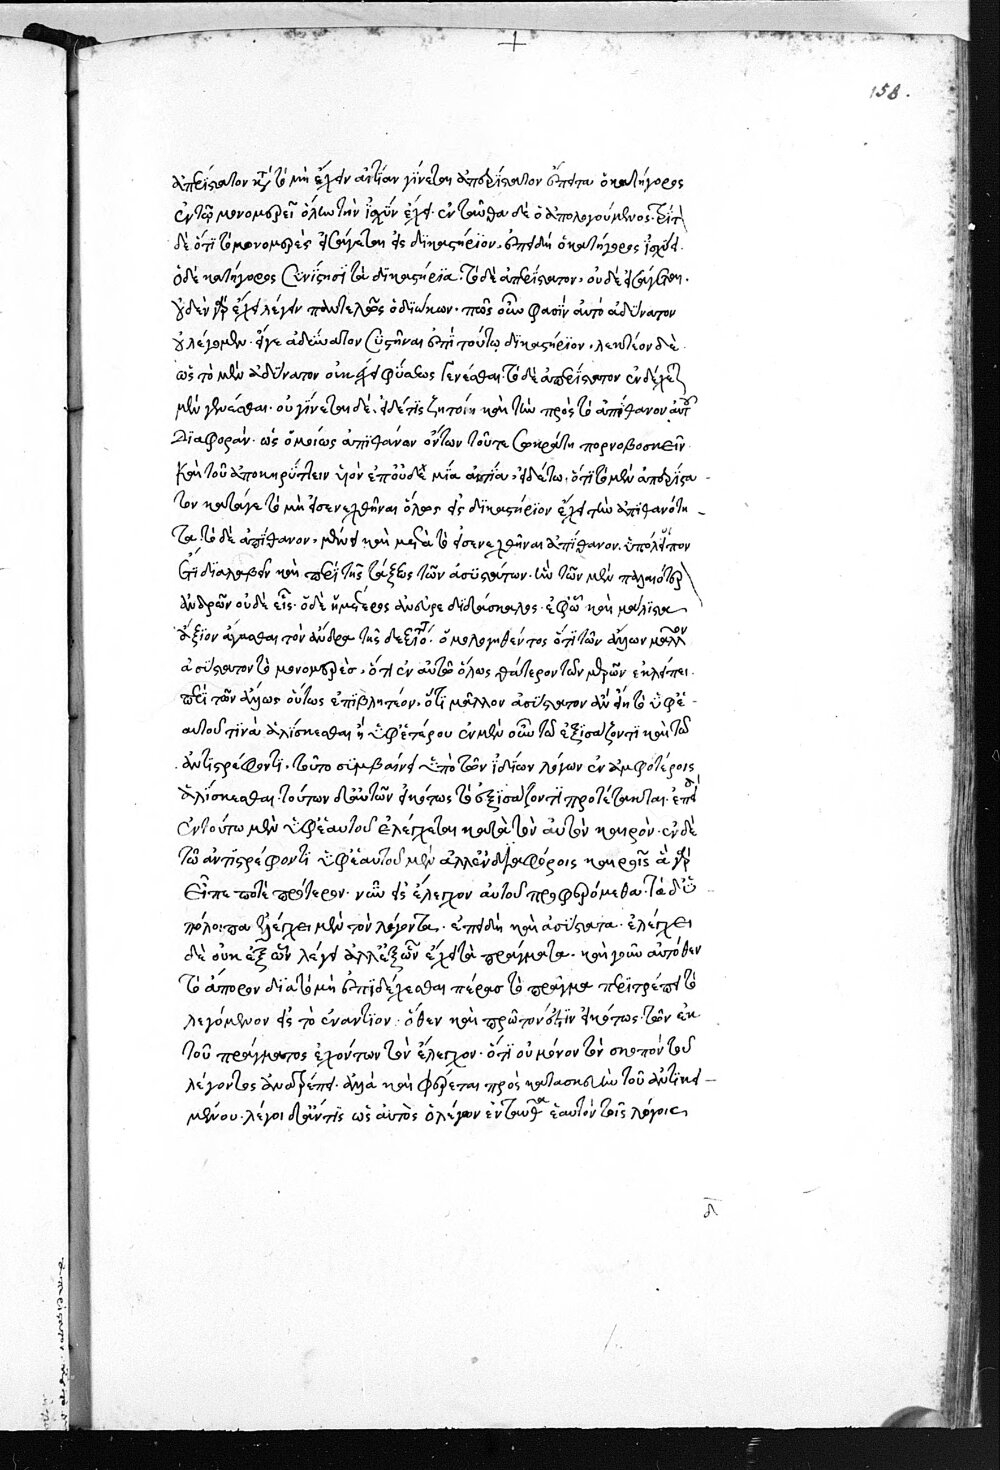 158.
ἀπερίστατον κατὰ τὸ μὴ ἔχειν αἰτίαν γίνεται ἀπερίστατον ἔπειτα ὁ κατήγορος
ἐν τῷ μονομερεῖ ὅλην τὴν ἰσχὺν ἔχει· ἐνταῦθα δὲ ὁ ἀπολογούμενος·
δὲ ὅτι τὸ μονομερὲς εἰσάγεται εἰς δικαστήριον, ἐπειδὴ ὁ κατήγορος ἰσχύει·
ὁ δὲ κατήγορος συνίστησι τὰ δικαστήρια· τὸ δὲ ἀπερίστατον, οὐδὲ εἰσάγεται·
οὐδὲν γὰρ ἔχει λέγειν παντελῶς ὁ διώκων· πῶς οὖν φασὶν αὐτὸ ἀδύνατον
οὐ λέγομεν· εἴγε ἀδύνατον συστῆναι ἐπὶ τούτῳ δικαστήριον, λεκτέον δὲ
ὡς τὸ μὲν ἀδύνατον οὐκ ἔχει φύσεως γενέσθαι· τὸ δὲ ἀπερίστατον ἐνδέχεται
μὲν γενέσθαι· οὐ γίνεται δέ· εἰ δέ τις ζητοίη καὶ τὴν πρὸς τὸ ἀπίθανον αὐτοῦ
διαφοράν· ὡς ὁμοίως ἀπιθάνων ὄντων τοῦ τε σωκράτη πορνοβοσκεῖν
καὶ τοῦ ἀποκηρύττειν υἱὸν ἐπ' οὐδεμιᾷ αἰτίᾳ, εἰδέτω, ὅτι τὸ μὲν ἀπερίστα-
τον κατάγε τὸ μὴ εἰσενεχθῆναι ὅλως εἰς δικαστήριον ἔχει τὴν ἀπιθανότη-
τα· τὸ δὲ ἀπίθανον, μένει καὶ μετὰ τὸ εἰσενεχθῆναι ἀπίθανον. ὑπόλοιπον
ἔτι διαλαβεῖν καὶ περὶ τῆς τάξεως τῶν ἀσυστάτων· ἣν τῶν μὲν παλαιοτέρων
ἀνδρῶν οὐδὲ εἷς· ὁ δὲ ἡμέτερος ἀνεῦρε διδάσκαλος· ἐφ' ᾧ καὶ μάλιστα
ἄξιον ἄγασθαι τὸν ἄνδρα τῆς δεξιότητος· ὁμολογηθέντος ὅτι τῶν ἄλλων μᾶλλον
ἀσύστατον τὸ μονομερὲς, ὅτι ἐν αὐτῷ ὅλως θάτερον τῶν μερῶν ἐκλείπει.
περὶ τῶν ἄλλως οὕτως ἐπιβλητέον, ὅτι μᾶλλον ἀσύστατον ἂν εἴη τὸ ὑφ' ἑ-
αυτοῦ τινὰ ἁλίσκεσθαι ἢ ὑφ' ἑτέρου ἐν μὲν οὖν τῷ ἐξισάζοντι καὶ τῷ
ἀντιστρέφοντι, τοῦτο συμβαίνει ὑπὸ τῶν ἰδίων λόγων ἐν ἀμφοτέροις
ἁλίσκεσθαι· τούτων δ' αὐτῶν εἰκότως τὸ ἐξισάζον τι προτέτακται· ἐπειδὴ
ἐν τούτῳ μὲν ὑφ' ἑαυτοῦ ἐλέγχεται κατὰ τὸν αὐτὸν καιρὸν· ἐν δὲ
τῷ ἀντιστρέφοντι ὑφ' ἑαυτοῦ μὲν ἀλλ' ἐν διαφόροις καιροῖς ἃ γὰρ
εἶπε ποτὲ πρότερον· νῦν εἰς ἔλεγχον αὐτοῦ προφερόμεθα· τὰ δ' ὑ-
πόλοιπα ἐλέγχει μὲν τὸν λέγοντα, ἐπειδὴ καὶ ἀσύστατα· ἐλέγχει
δὲ οὐκ ἐξ ὧν λέγει ἀλλ' ἐξ ὧν ἔχει τὰ πράγματα· καὶ γοῦν αὐτόθεν
τὸ ἄπορον διὰ τὸ μὴ ἐπιδέχεσθαι πέρας τὸ πρᾶγμα περιτρέπει τὸ
λεγόμενον εἰς τὸ ἐναντίον· ὅθεν καὶ πρῶτον ἐστὶν εἰκότως· τῶν ἐκ
τοῦ πράγματος ἐχόντων τὸν ἔλεγχον· ὅτι οὐ μόνον τὸν σκοπὸν τοῦ
λέγοντος ἀνατρέπει· ἀλλὰ καὶ φέρεται πρὸς κατασκευὴν τοῦ ἀντικει-
μένου· λέγοι δ' ἄν τις ὡς αὐτὸς ὁ λέγων ἐνταῦθα ἑαυτὸν τοῖς λόγοις
δ